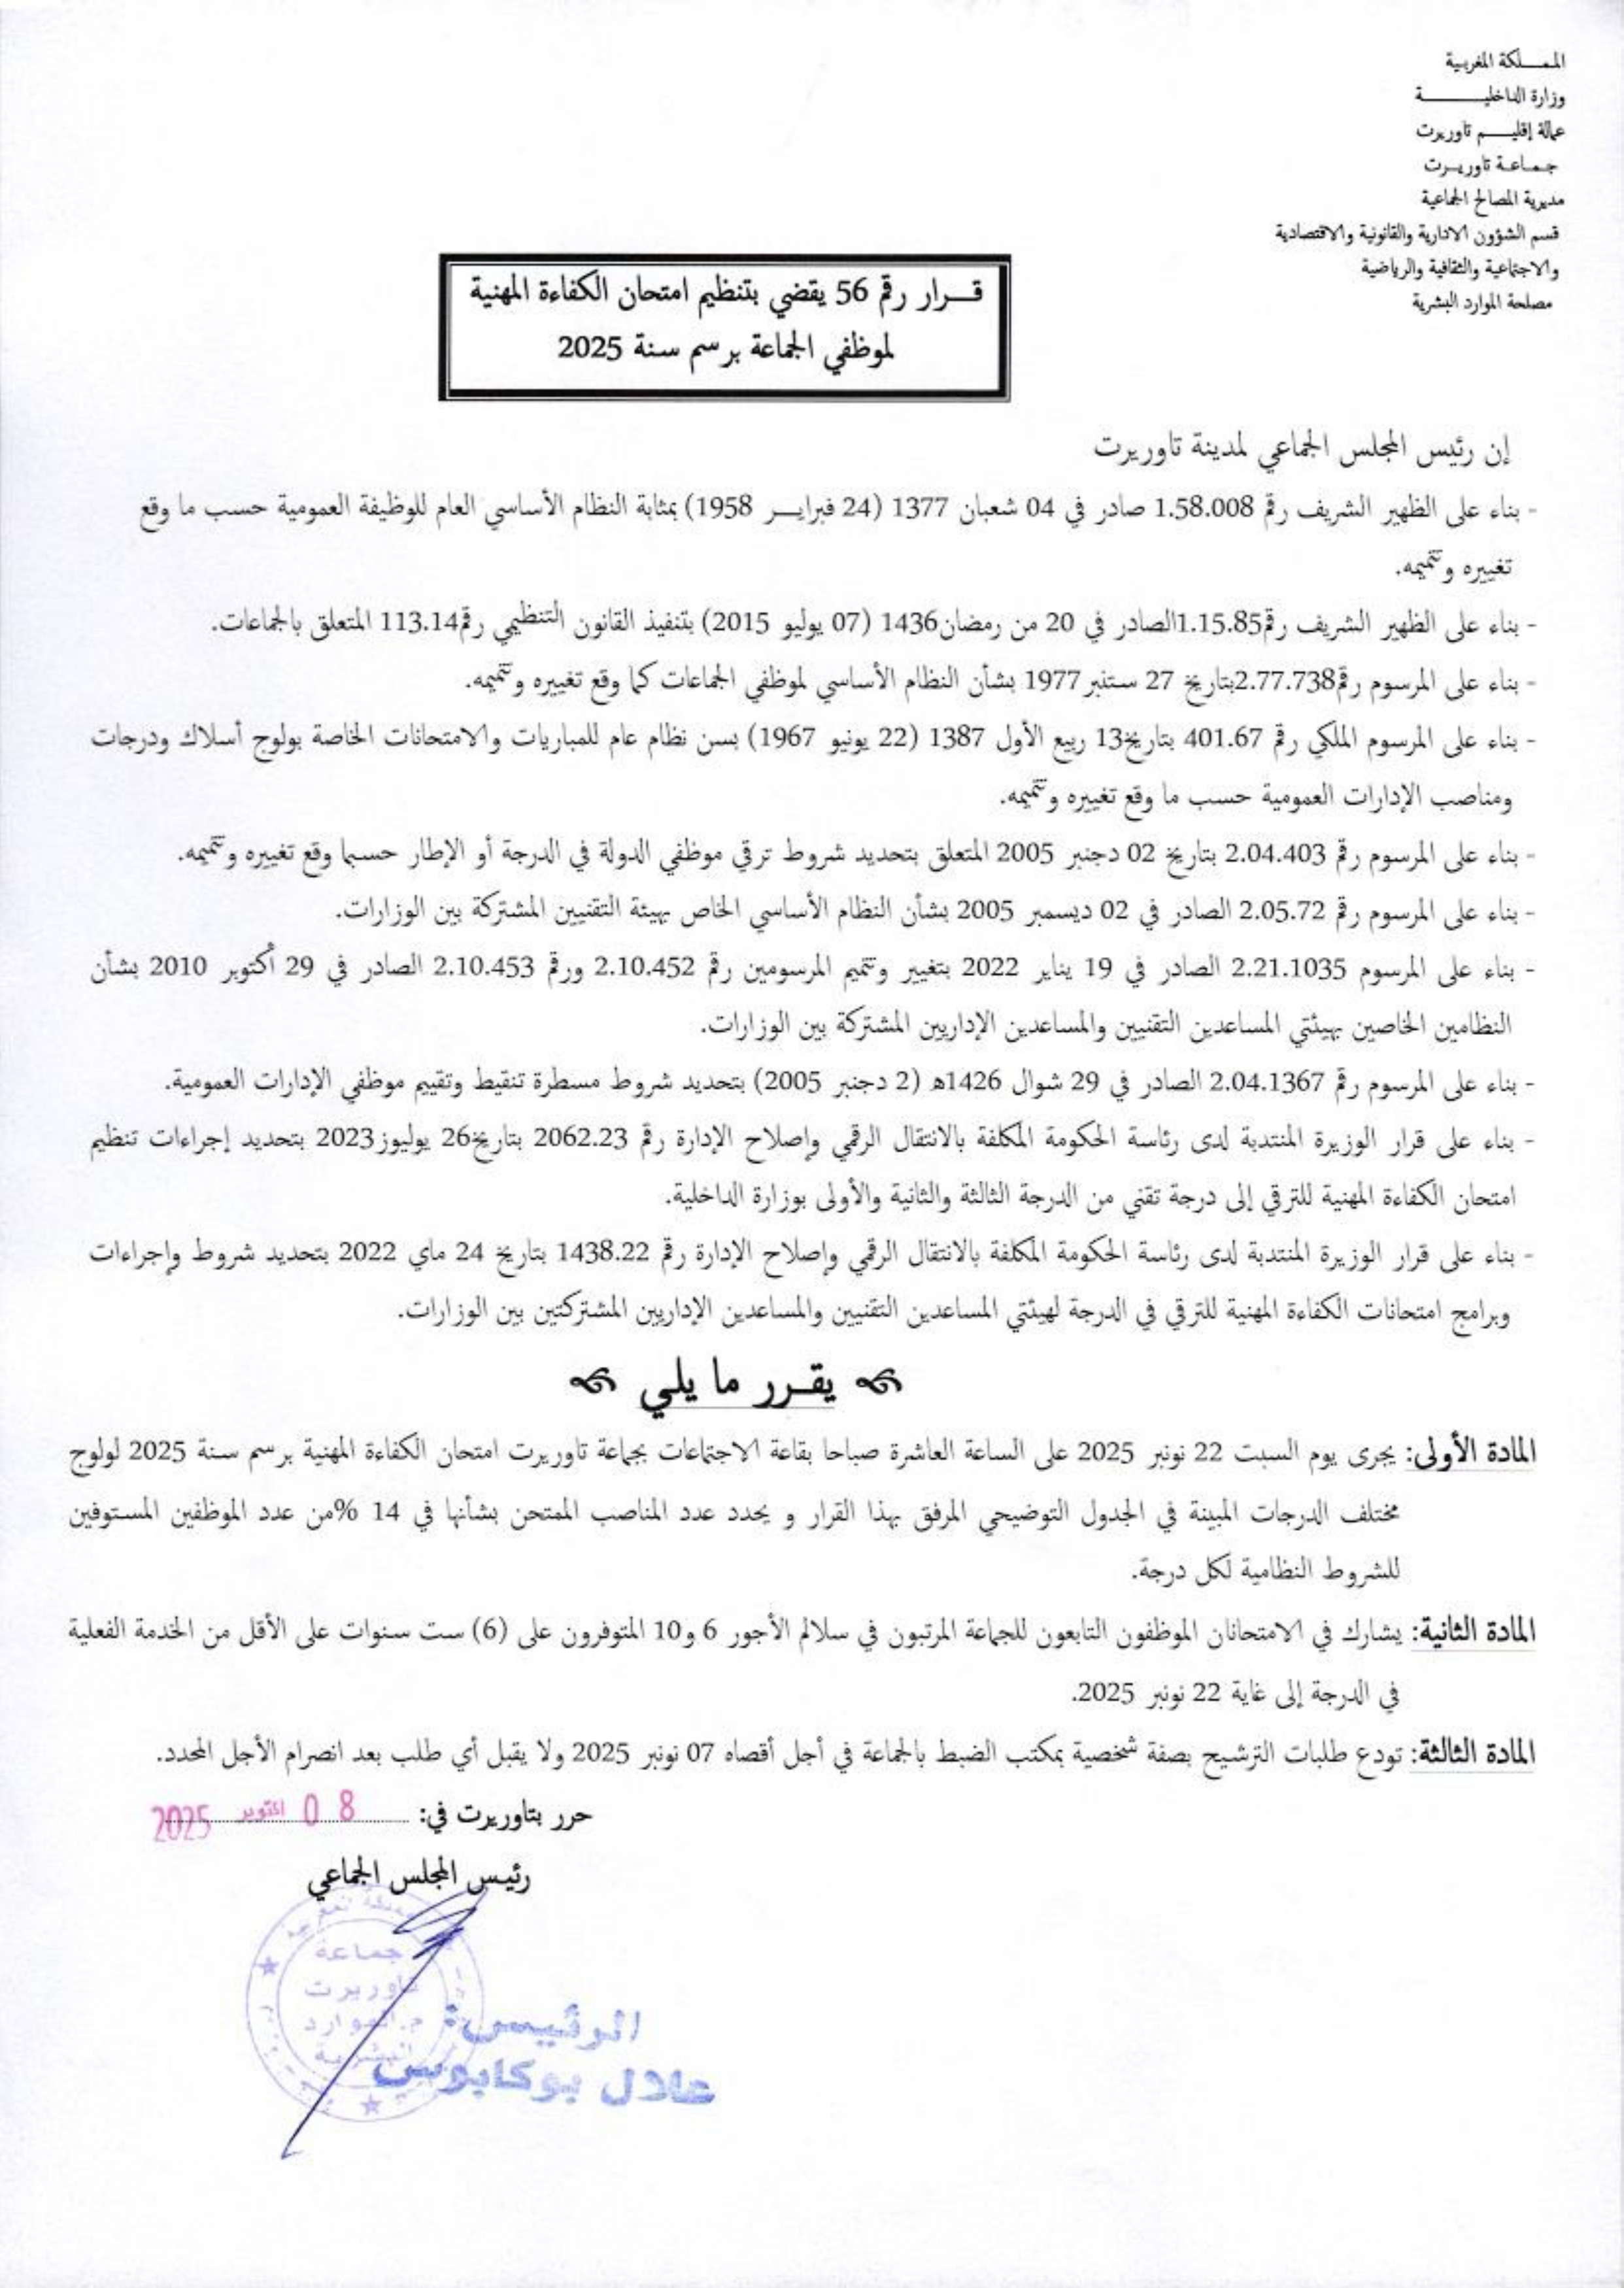 المملكة المغربية
وزارة الداخلية
عمالة إقليم تاوريرت
جماعة تاوريرت
مديرية المصالح الجماعية
قسم الشؤون الادارية والقانونية والاقتصادية
والاجتماعية والثقافية والرياضية
مصلحة الموارد البشرية
قرار رقم 56 يقضي بتنظيم امتحان الكفاءة المهنية
لموظفي الجماعة برسم سنة 2025
إن رئيس المجلس الجماعي لمدينة تاوريرت
- بناء على الظهير الشريف رقم 1.58.008 صادر في 04 شعبان 1377 (24 فبراير 1958) بمثابة النظام الأساسي العام للوظيفة العمومية حسب ما وقع
تغييره وتتميمه.
- بناء على الظهير الشريف رقم1.15.85الصادر في 20 من رمضان1436 (07 يوليو 2015) بتنفيذ القانون التنظيمي رقم113.14 المتعلق بالجماعات.
- بناء على المرسوم رقم2.77.738بتاريخ 27 ستنبر 1977 بشأن النظام الأساسي لموظفي الجماعات كما وقع تغييره وتتميمه.
- بناء على المرسوم الملكي رقم 401.67 بتاريخ13 ربيع الأول 1387 (22 يونيو 1967) بسن نظام عام للمباريات والامتحانات الخاصة بولوج أسلاك ودرجات
ومناصب الإدارات العمومية حسب ما وقع تغييره وتتميمه.
- بناء على المرسوم رقم 2.04.403 بتاريخ 02 دجنبر 2005 المتعلق بتحديد شروط ترقي موظفي الدولة في الدرجة أو الإطار حسبما وقع تغييره وتتميمه.
- بناء على المرسوم رقم 2.05.72 الصادر في 02 ديسمبر 2005 بشأن النظام الأساسي الخاص بهيئة التقنيين المشتركة بين الوزارات.
- بناء على المرسوم 2.21.1035 الصادر في 19 يناير 2022 بتغيير وتتميم المرسومين رقم 2.10.452 ورقم 2.10.453 الصادر في 29 أكتوبر 2010 بشأن
النظامين الخاصين بهيئتي المساعدين التقنيين والمساعدين الإداريين المشتركة بين الوزارات.
- بناء على المرسوم رقم 2.04.1367 الصادر في 29 شوال 1426ه (2 دجنبر 2005) بتحديد شروط مسطرة تنقيط وتقييم موظفي الإدارات العمومية.
- بناء على قرار الوزيرة المنتدبة لدى رئاسة الحكومة المكلفة بالانتقال الرقمي وإصلاح الإدارة رقم 2062.23 بتاريخ26 يوليوز2023 بتحديد إجراءات تنظيم
امتحان الكفاءة المهنية للترقي إلى درجة تقني من الدرجة الثالثة والثانية والأولى بوزارة الداخلية.
- بناء على قرار الوزيرة المنتدبة لدى رئاسة الحكومة المكلفة بالانتقال الرقمي وإصلاح الإدارة رقم 1438.22 بتاريخ 24 ماي 2022 بتحديد شروط وإجراءات
وبرامج امتحانات الكفاءة المهنية للترقي في الدرجة لهيئتي المساعدين التقنيين والمساعدين الإداريين المشتركتين بين الوزارات.
يقرر ما يلي
المادة الأولى: يجرى يوم السبت 22 نونبر 2025 على الساعة العاشرة صباحا بقاعة الاجتماعات بجماعة تاوريرت امتحان الكفاءة المهنية برسم سنة 2025 لولوج
مختلف الدرجات المبينة في الجدول التوضيحي المرفق بهذا القرار و يحدد عدد المناصب الممتحن بشأنها في 14 %من عدد الموظفين المستوفين
للشروط النظامية لكل درجة.
المادة الثانية: يشارك في الامتحانان الموظفون التابعون للجماعة المرتبون في سلالم الأجور 6 و10 المتوفرون على (6) ست سنوات على الأقل من الخدمة الفعلية
في الدرجة إلى غاية 22 نونبر 2025.
المادة الثالثة: تودع طلبات الترشيح بصفة شخصية بمكتب الضبط بالجماعة في أجل أقصاه 07 نونبر 2025 ولا يقبل أي طلب بعد انصرام الأجل المحدد.
حرر بتاوريرت في: 0 8 اكتوبر 2025
رئيس المجلس الجماعي
جماعة
تاوريرت
م.الموارد
البشرية
الرئيس:
علال بوكابوس